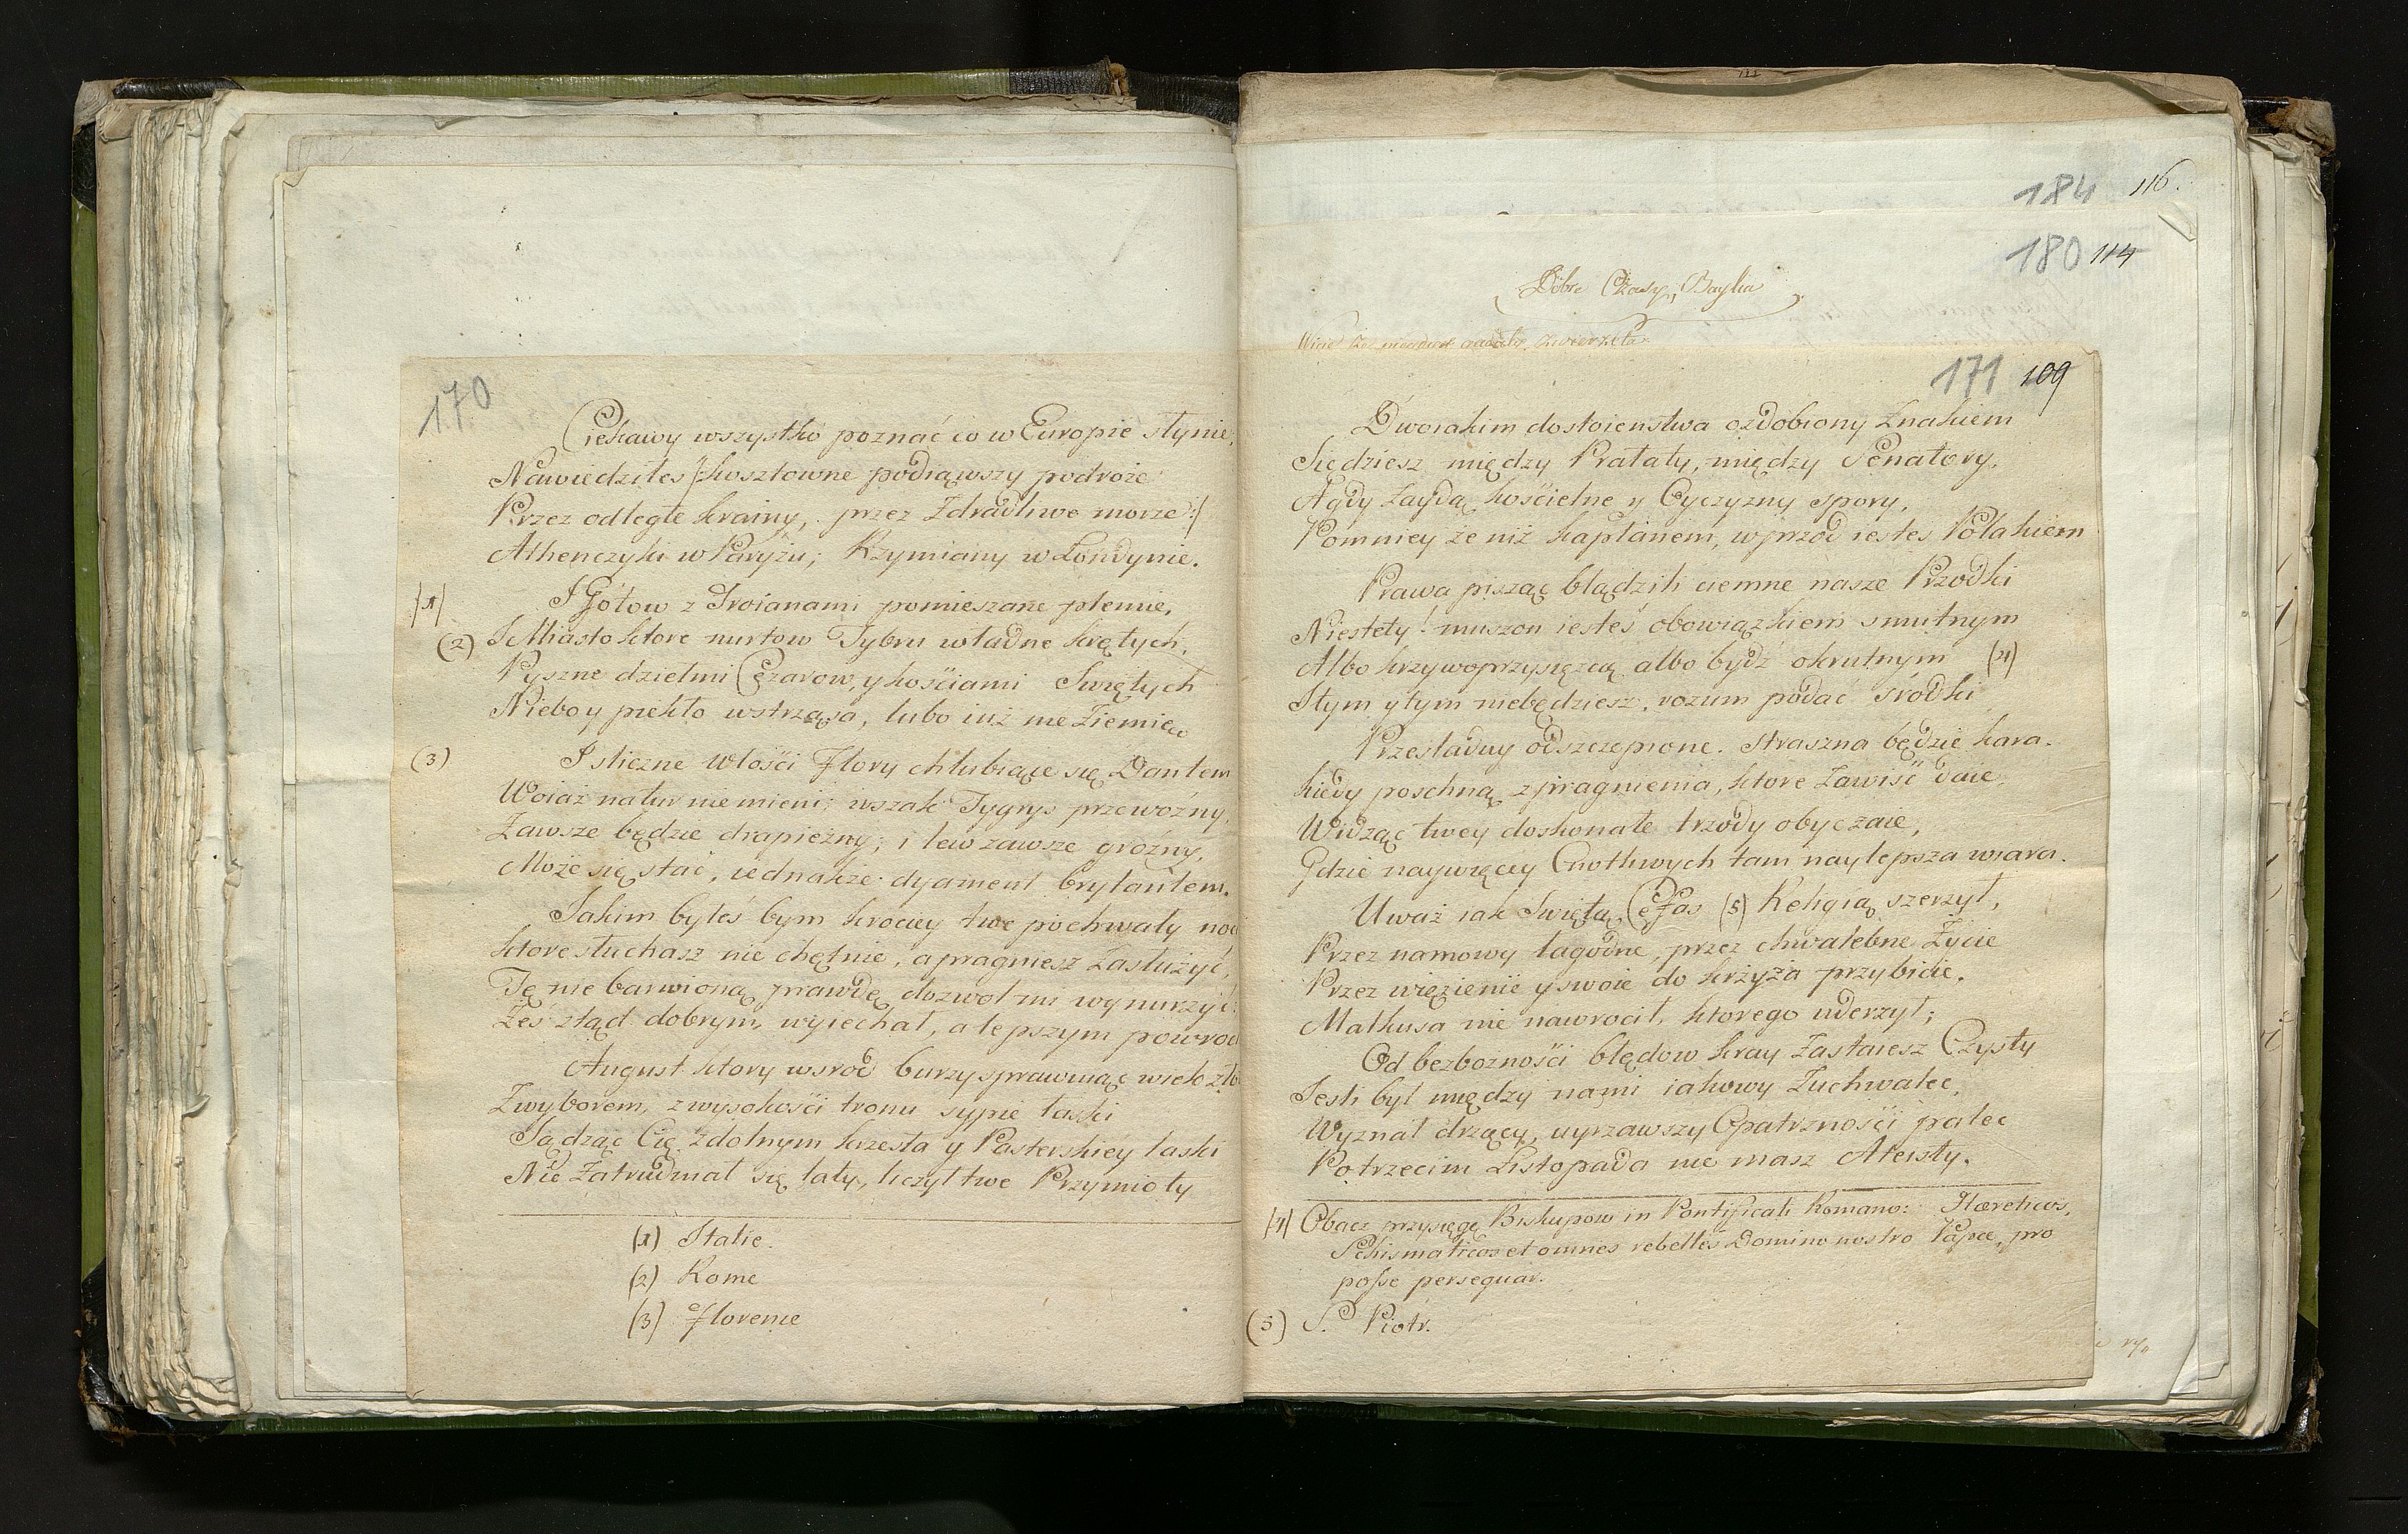 170
Ciekawy wszystko poznać co w Europie słynie,
Nawiedziłes /:kosztowne podiąwszy podroże
Przez odległe krainy, przez Zdradliwe morze:/
Athenczyki w Paryżu; Rzymiany w Londynie.
/1/ I Gotow z Troianami pomieszane plemie,
(2) I Miasto ktore nurtow Tybru władne krętych,
Pyszne dziełmi Cezarow, y kościami Swiętych
Niebo y piekło wstrząsa, lubo iuż nie Ziemię
(3) I śliczne włości Flory chlubiące się Dantem
Woiaż natur nie mieni; wszak Tygrys przewoźny,
Zawsze będzie drapieżny; i lew zawsze groźny,
Może się stać, iednakże dyament brylantem.
Jakim byłeś bym krocey twe pochwały
ktore słuchasz nie chętnie, a pragniesz Zasłużyć,
Tę nie barwioną prawdę dozwol mi wynurzyć:
Żeś ztąd dobrym wyiechał, a lepszym
August ktory wsrod burzy sprawuiąc wiek
Zwyborem, z wysokości tronu sypie łaski
Sądząc Cię zdolnym krzesła y Pasterskiey laski
Nie Zatrudniał się laty, liczył twe Przymioty
(1) Italie.
(2) Rome
(3) Florence
184 116.
180 114
Dobre Czasy, Bayka
171 109
Dwoiakim dostoieństwa ozdobiony Znakiem
Siędziesz między Prałaty, między Senatory,
A gdy Zayda kościelne y Oyczyzny spory,
Pomniey że niż kapłanem, wprzod iestes Polakiem
Prawa pisząc błądzili ciemne nasze Przodki
Niestety! muszon iesteś obowiązkiem smutnym
Albo krzywoprzysięzcą albo bydź okrutnym (4)
I tym y tym niebędziesz, rozum podać środki
Prześladuy odszczepione. straszna będzie kara.
kiedy poschną z pragnienia, ktore Zawiść daie
Widząc twey doskonałe trzody obyczaie,
Gdzie naywięcey Cnotliwych tam naylepsza wiara.
Uważ iak Swiętą Cefas (5) Religią szerzył,
Przez namowy łagodne, przez chwalebne Życie
Przez więzienie y swoie do krzyża przybicie.
Malkusa nie nawrocił, ktorego uderzył;
Od bezbożności błędow kray Zastaiesz Czysty
Jesli był między nami iakowy Zuchwalec,
Wyznał drżący, uyrzawszy Opatrzności palec
Po trzecim Listopada nie masz Ateisty.
/4/ Obacz przysięgę Biskupow in Pontificali Romano: Hæreticos,
Schismaticos et omnes rebelles Domino nostro Papæ, pro
posse persequar.
(5) S. Piotr.